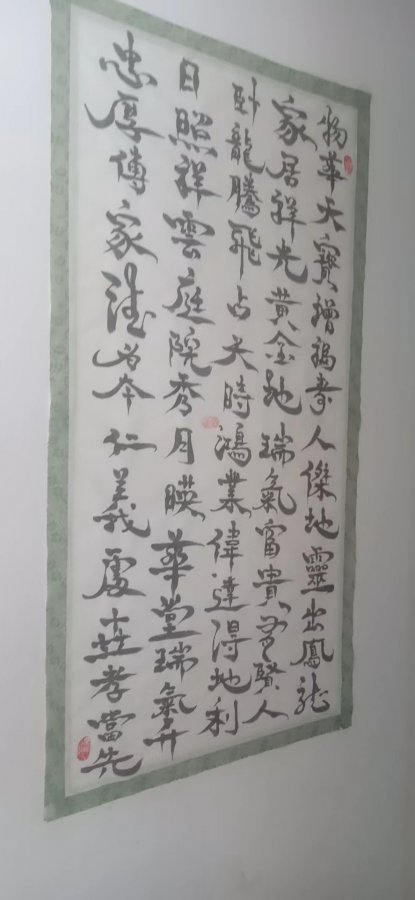 物華天寶增福壽人傑地靈出鳳龍
家居祥光黃金地瑞氣富貴賢人
卧龍騰飛占天時鴻業偉達得地利
日照祥雲庭院秀月暎華堂瑞氣升
忠厚傳家為本仁義處世孝當先